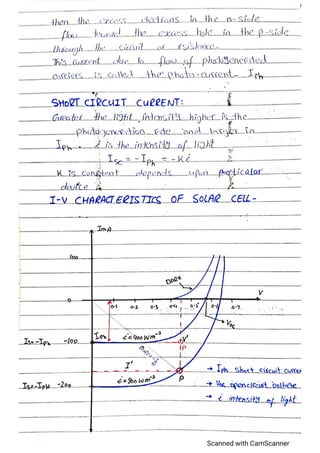 then the excess electrons in the n-side
flow toward the excess hole in the p-side
through the circuit or resistance.
This current due to flow of photogenerated
carriers is called the photo-current Iph
SHORT CIRCUIT CURRENT:
Greater the light intensity higher is the
photogeneration rate and larger is
Iph. i is the intensity of light
Isc = -Iph = -Ki
K is constant depends upon particular
device
I-V CHARACTERISTICS OF SOLAR CELL-
I mA
100
DARK
V
0
0.1 0.2 0.3 0.4 0.5 0.6 0.7
Voc
Isc=Iph -100
Iph
i=400 Wm⁻²
V'
I'
Isc=Iph -200
P
→ Iph short circuit current
→ Voc open circuit voltage
→ i intensity of light
Scanned with CamScanner